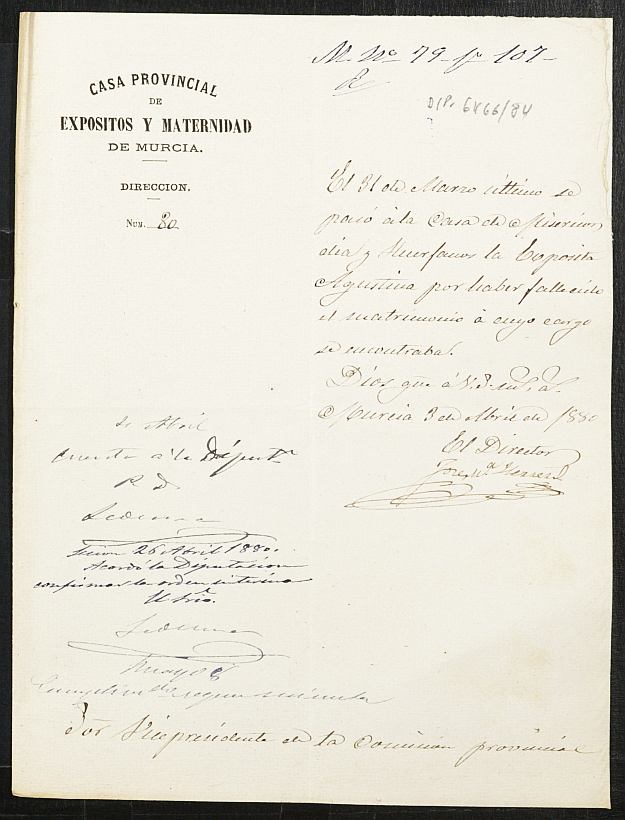 M. Nº 79 fº 107
DIP. 6466/84
CASA PROVINCIAL
DE
EXPOSITOS Y MATERNIDAD
DE MURCIA.
DIRECCION.
NUM. 80
El 31 de Marzo último se
pasó á la Casa de Misericor
dia y Huerfanos la Exposita
Agustina por haber fallecido
el matrimonio á cuyo cargo
se encontraba.
Dios gue á V.S. ms. as.
Murcia 3 de Abril de 1880
El Director
José Mª
Abril
Cuenta á la Diputn
P. D.
Ledesma
Sesion 26 Abril 1880.
Acordó la Diputacion
confirmar la orden interina
El Srio.
Ledesma
Mayo 8
Cumplim
Sor Vicepresidente de la Comision provincial